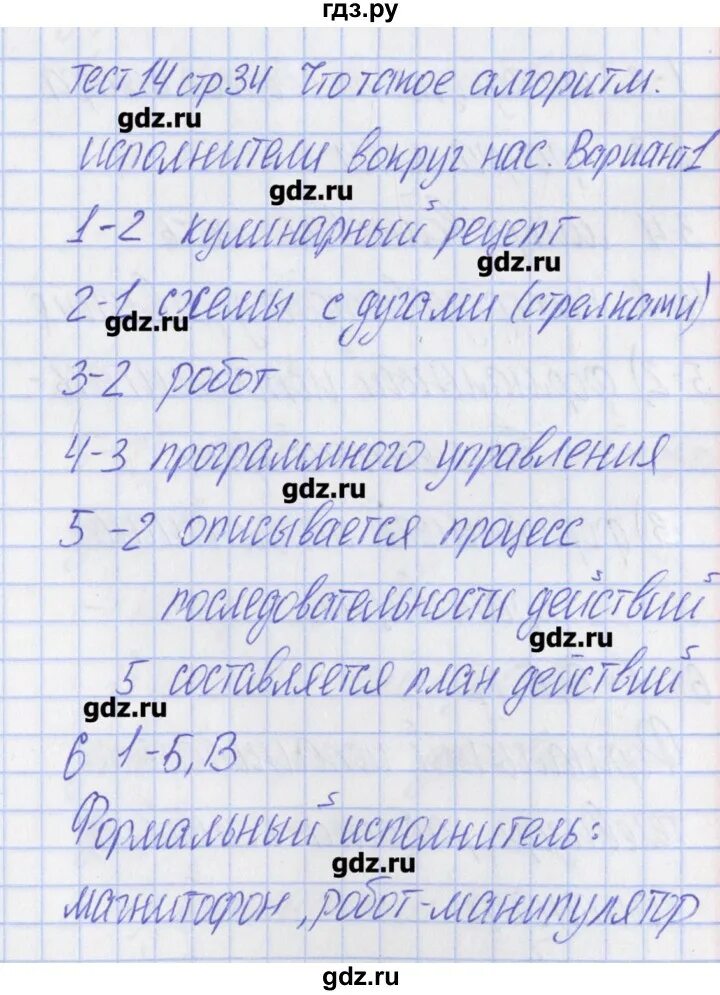 гдз.ру
Тест 14 стр 34 Что такое алгоритм.
gdz.ru
исполнители вокруг нас. Вариант 1
gdz.ru
1-2 кулинарный рецепт
gdz.ru
2-1 схемы с дугами (стрелками)
gdz.ru
3-2 робот
4-3 программного управления
gdz.ru
5-2 описывается процесс
последовательности действий
gdz.ru
5 составляется план действий
gdz.ru
6 1-Б, В
Формальный исполнитель:
gdz.ru
магнитофон, робот-манипулятор
gdz.ru